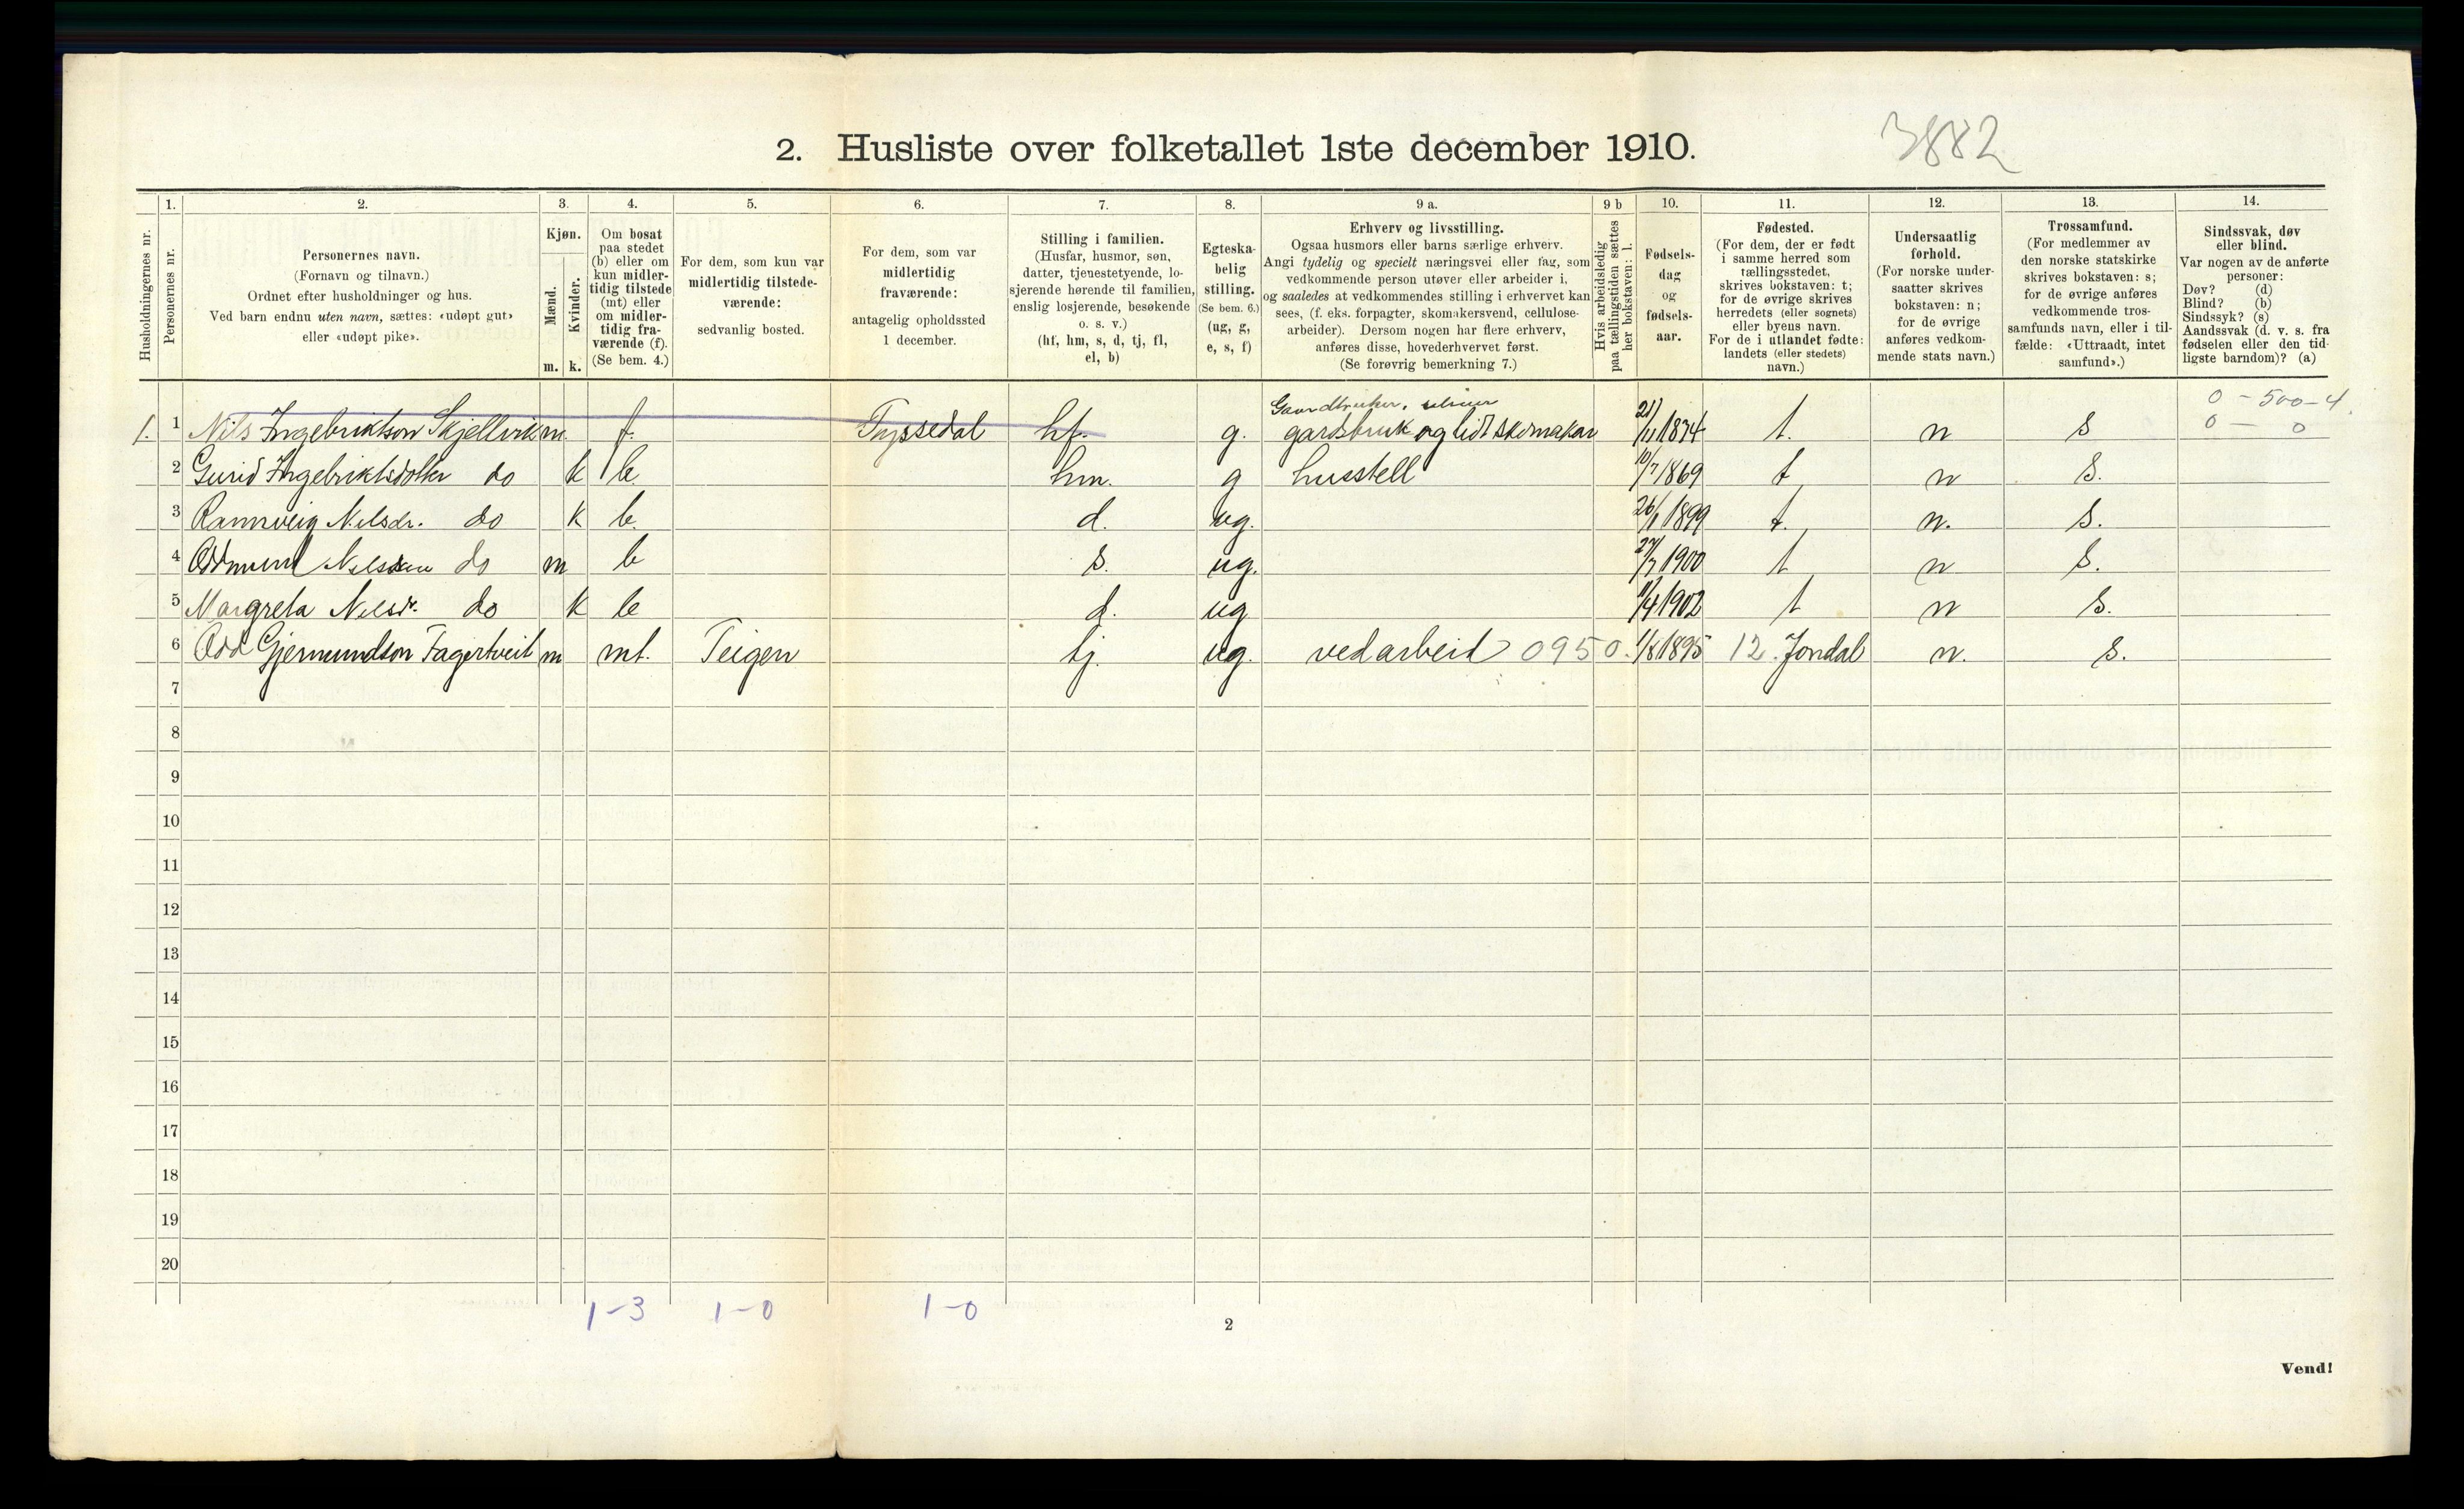 2. Husliste over folketallet 1ste december 1910.
3882
Husholdningernes nr.
1.
Personernes nr.
2.
Personernes navn.
(Fornavn og tilnavn.)
Ordnet efter husholdninger og hus.
Ved barn endnu uten navn, sættes: «udøpt gut»
eller «udøpt pike».
3.
Kjøn.
Mænd.
Kvinder.
m. k.
4.
Om bosat
paa stedet
(b) eller om
kun midler-
tidig tilstede
(mt) eller
om midler-
tidig fra-
værende (f).
(Se bem. 4.)
5.
For dem, som kun var
midlertidig tilstede-
værende:
sedvanlig bosted.
6.
For dem, som var
midlertidig
fraværende:
antagelig opholdssted
1 december.
7.
Stilling i familien.
(Husfar, husmor, søn,
datter, tjenestetyende, lo-
sjerende hørende til familien,
enslig losjerende, besøkende
o. s. v.)
(hf, hm, s, d, tj, fl,
el, b)
8.
Egteska-
belig
stilling.
(Se bem. 6.)
(ug, g,
e, s, f)
9 a.
Erhverv og livsstilling.
Ogsaa husmors eller barns særlige erhverv.
Angi tydelig og specielt næringsvei eller fag, som
vedkommende person utøver eller arbeider i,
og saaledes at vedkommendes stilling i erhvervet kan
sees, (f. eks. forpagter, skomakersvend, cellulose-
arbeider). Dersom nogen har flere erhverv,
anføres disse, hovederhvervet først.
(Se forøvrig bemerkning 7.)
9 b
Hvis arbeidsledig
paa tællingstiden sættes
her bokstaven: l.
10.
Fødsels-
dag
og
fødsels-
aar.
11.
Fødested.
(For dem, der er født
i samme herred som
tællingsstedet,
skrives bokstaven: t;
for de øvrige skrives
herredets (eller sognets)
eller byens navn.
For de i utlandet fødte:
landets (eller stedets)
navn.)
12.
Undersaatlig
forhold.
(For norske under-
saatter skrives
bokstaven: n;
for de øvrige
anføres vedkom-
mende stats navn.)
13.
Trossamfund.
(For medlemmer av
den norske statskirke
skrives bokstaven: s;
for de øvrige anføres
vedkommende tros-
samfunds navn, eller i til-
fælde: «Uttraadt, intet
samfund».)
14.
Sindssvak, døv
eller blind.
Var nogen av de anførte
personer:
Døv? (d)
Blind? (b)
Sindssyk? (s)
Aandssvak (d. v. s. fra
fødselen eller den tid-
ligste barndom)? (a)
Gaardbruker, 0 - 500 - 4.
1. 1 Nils Ingebriktson Skjellvik m. f. Tyssedal hf. g. gardsbruk og lidt skomakar 21/11 1874 t. n s 0 - 0
2 Gurid Ingebriktsdotter do k b. hm. g husstell 10/7 1869 t n s.
3 Rannveig Nilsdr. do k b. d. ug. 26/1 1899 t. n. s.
4 Oddmund Nilsson do m b s. ug. 27/7 1900 t n s.
5 Margreta Nilsdr. do k b d. ug 11/4 1902 t n s.
6 Odd Gjermundson Fagertveit m mt. Teigen tj. ug. vedarbeid 0950. 1/8 1895 12. Jondal n. s.
7
8
9
10
11
12
13
14
15
16
17
18
19
20
1-3 1-0 1-0
2
Vend!